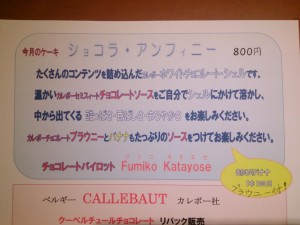 今月のケーキ ショコラ・アンフィニー 800円
たくさんのコンテンツを詰め込んだカレボーホワイトチョコレート・シェルです。
温かいカレボーセミスィートチョコレートソースをご自分でシェルにかけて溶かし、
中から出てくる をお楽しみください。
カレボーチョコレートブラウニーとバナナもたっぷりのソースをつけてお楽しみください。
チョコレートパイロット Fumiko Katayose
ブラウニー付!
ベルギー CALLEBAUT カレボー社
クーベルチュールチョコレート リパック販売